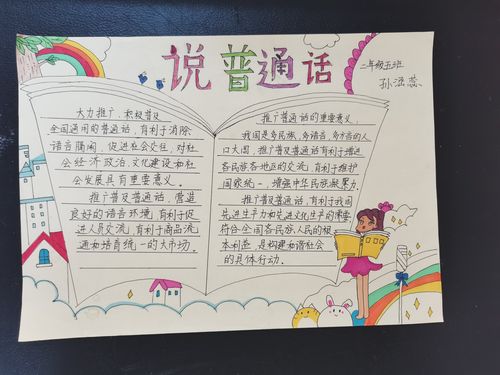 说普通话
二年级五班
孙涵蕊
大力推广、积极普及
全国通用的普通话，有利于消除
语言隔阂，促进社会交往，对社
会经济政治、文化建设和社
会发展具有重要意义。
推广普及普通话，营造
良好的语言环境，有利于促
进人员交流，有利于商品流
通和培育统一的大市场。
推广普通话的重要意义：
我国是多民族、多语言、多方言的人
口大国，推广普及普通话有利于增进
各民族各地区的交流，有利于维护
国家统一，增强中华民族凝聚力。
推广普及普通话，有利于我国
先进生产力和先进文化生产的需要
符合全国各民族人民的根
本利益，是构建和谐社会
的具体行动。